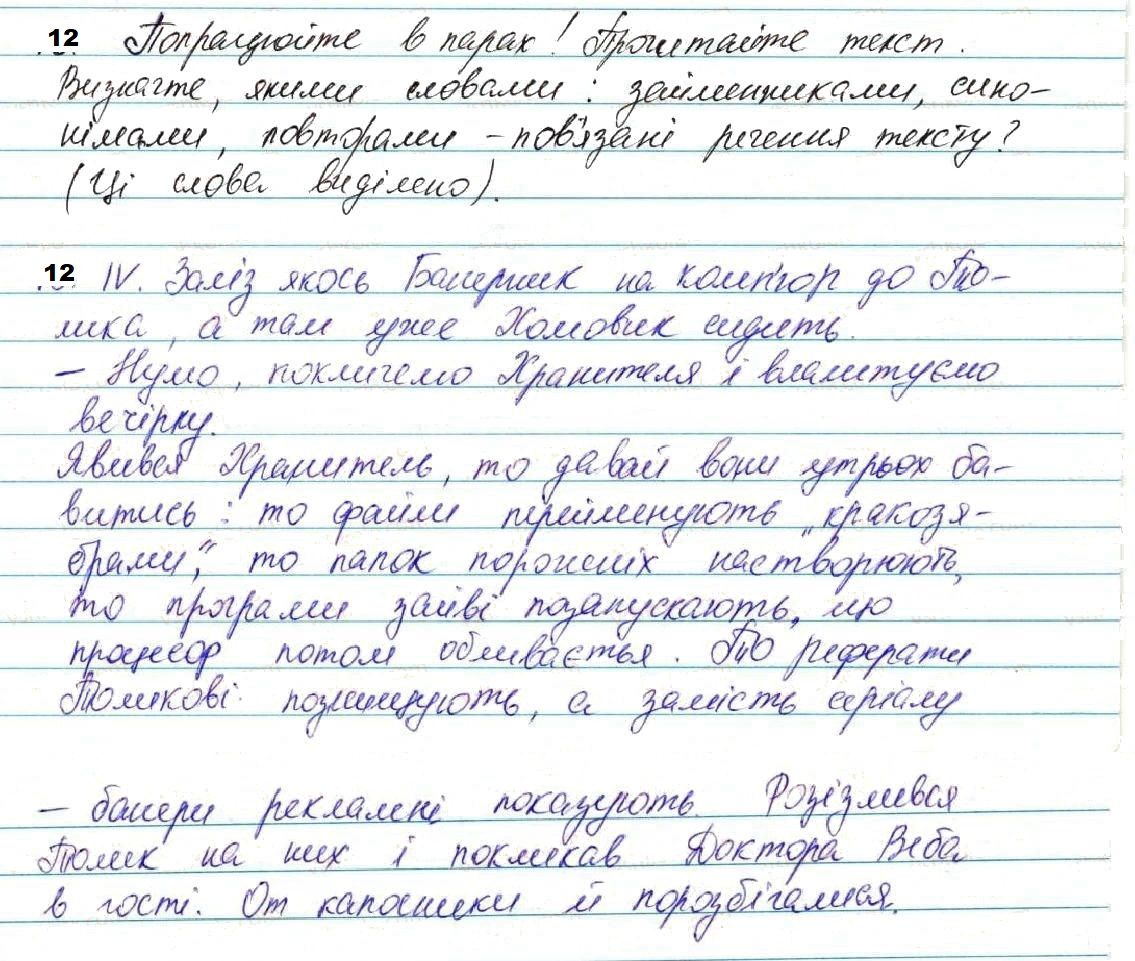 12 Попрацюйте в парах! Прочитайте текст.
Визначте, якими словами: займенниками, сино-
німами, повторами – пов'язані речення тексту?
(Ці слова виділено).
12 IV. Заліз якось Банерник на комп'ютер до То-
лика, а там уже Хомовик сидить.
– Нумо, покличемо Хранителя і влаштуємо
вечірку.
Явився Хранитель, то давай вони утрьох ба-
витись: то файли перейменують „кракозя-
брами", то папок порожніх настворюють,
то програми зайві позапускають, що
процесор потом обливається. То реферати
Толикові познищують, а замість серіалу
– банери рекламні показують. Розізлився
Толик на них і покликав Доктора Веба
в гості. От капосники й порозбігалися.